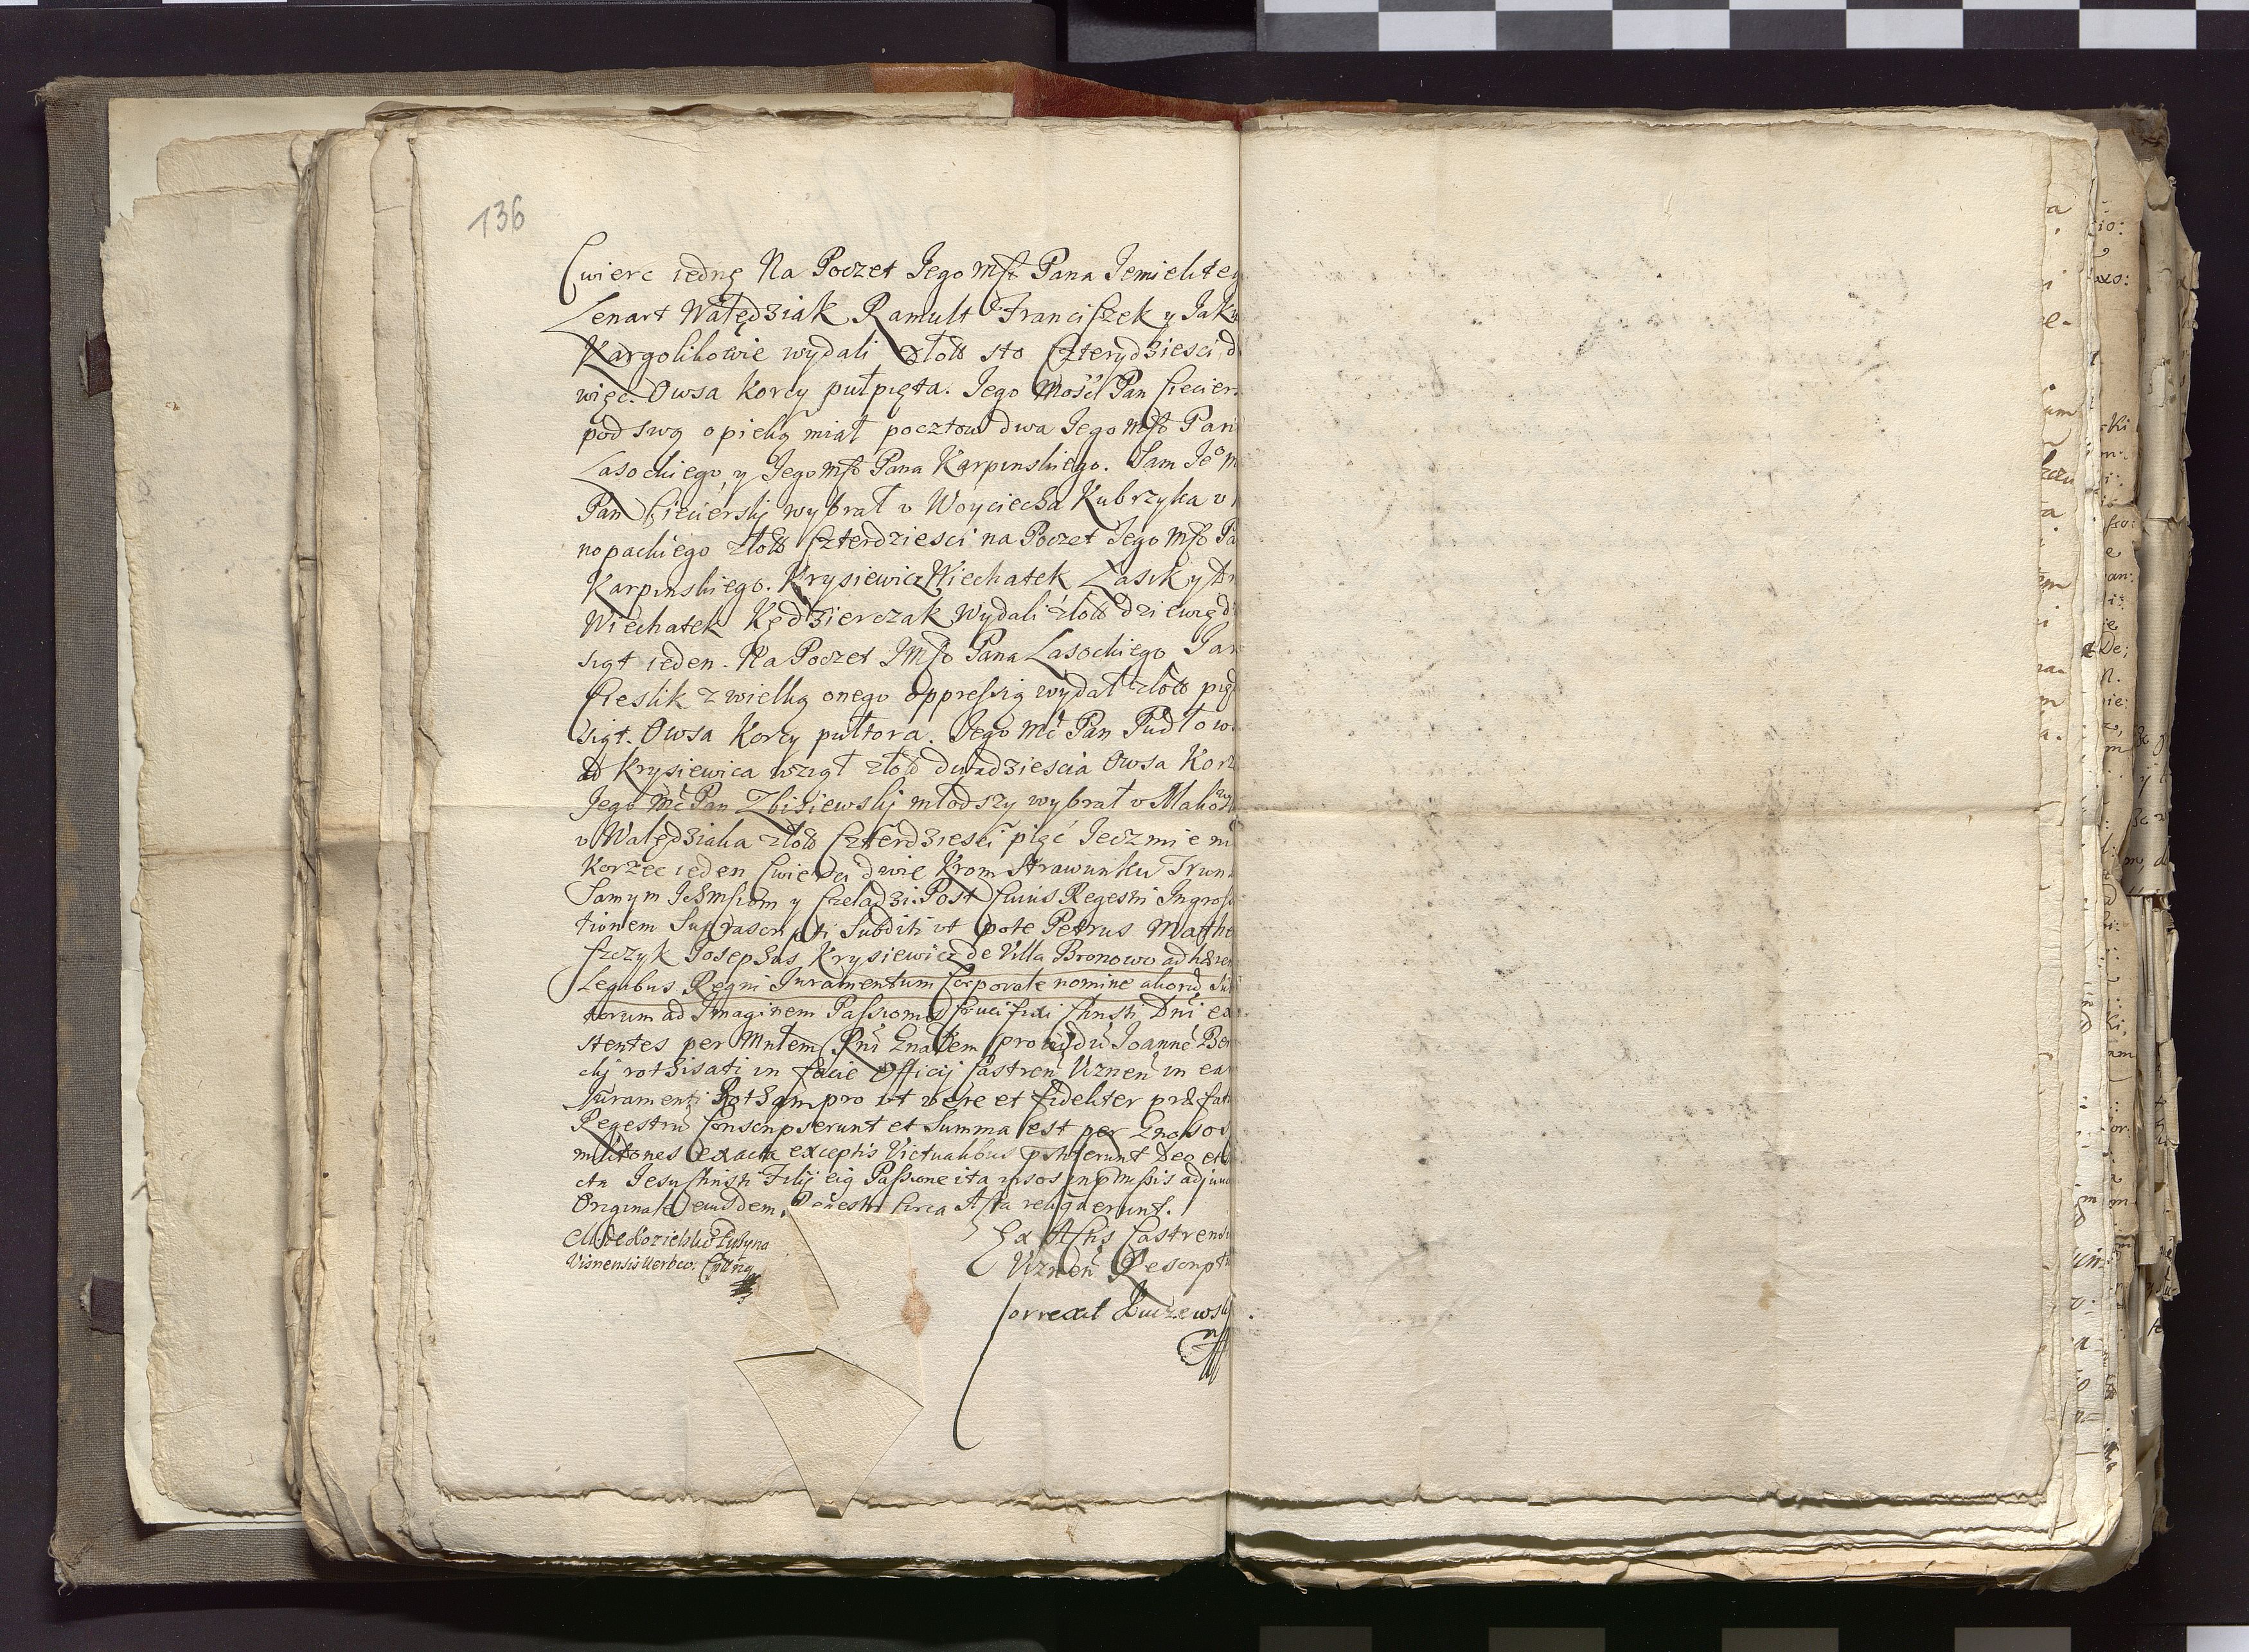 136
Cwierc iednę Na Poczet Jego Msc Pana Jemielite
Lenart Wałędziak Ramult Franciszek y Jaku
Kargolikowie wydali złott sto Czterydziesci d
więc. Owsa korcy pułpięta. Jego Mość Pan Ciecier
pod swą opieką miał pocztow dwa Jego Msc Pan
Lasockiego, y Jego Msc Pana Karpinskiego. Sam Jeo M
Pan Ciecierskj wybrał v Woyciecha Kubrzyka v
nopackiego złott Czterdziesci na Poczet Jego Msc Pa
Karpinskiego. Krysiewicz Wiechatek Lasik y
Wiechatek Kędzierczak Wydali złott dziewięd
siąt ieden. Na Poczet JMsc Pana Lasockiego Jan
Cieslik z wielką onego oppressią wydał złott pięd
siąt. Owsa Korcy pułtora. Jego Mć Pan Pudłow
od Krysiewica wziął złott dwadziescia Owsa Korz
Jego Mć Pan Zbisiewskj młodszy wybrał v
v Wałędziaka złott Czterdziesci pięć Jeczmieni
Korzec ieden Cwierci dwie Krom Strawunku Trun
Samym Ichmsciom y Czeladzi. Post Cuius Regestri Ingrossa
tionem Suprascripti Subditi vt pote Petrus Mathe
szczyk Josephus Krysiewicz de Villa Bronowo adhæren
Legibus Regni Juramentum Corporale nomine aliorũ Su
torum ad Imaginem Passionis Crucifixi Christi Dni ex
stentes per Mnłem Rni Gnałem providũ Joannẽ Ben
ckj rothisati in facie Officij Castreñ Vizneñ in ea
Juramenti Rotham pro vt vere et fideliter præfat
Regestrũ Conscripserunt et Summa est per Gnosos
militones exacta exceptis Victualibus Deo et
cta Jesu Christi Filij eiq Passione ita ipsos in pmissis adjuu
Originale eiusdem Regestri Circa Acta reliquerunt.
Ex Actis Castrensi
Vizneñ Rescriptu
M. de Kozielsko Puzyna
Visnensis
Correxit Kuczewsky